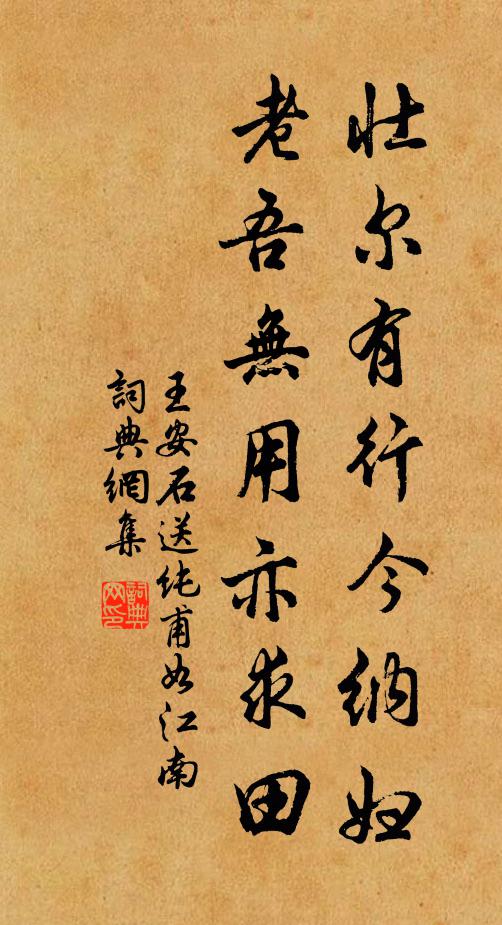 壮尔有行今纳妇
老吾無用亦求田
王安石送纯甫如江南
詞典網集
詞典网印